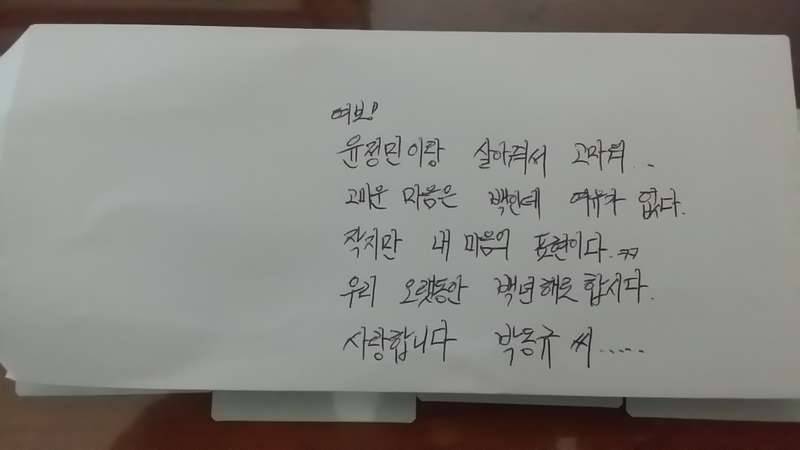 여보!
윤정민이랑 살아줘서 고마워..
고마운 마음은 백인데 여유가 없다.
작지만 내 마음의 표현이다.ㅋㅋ
우리 오랫동안 백년해로 합시다.
사랑합니다 박동규 씨.....